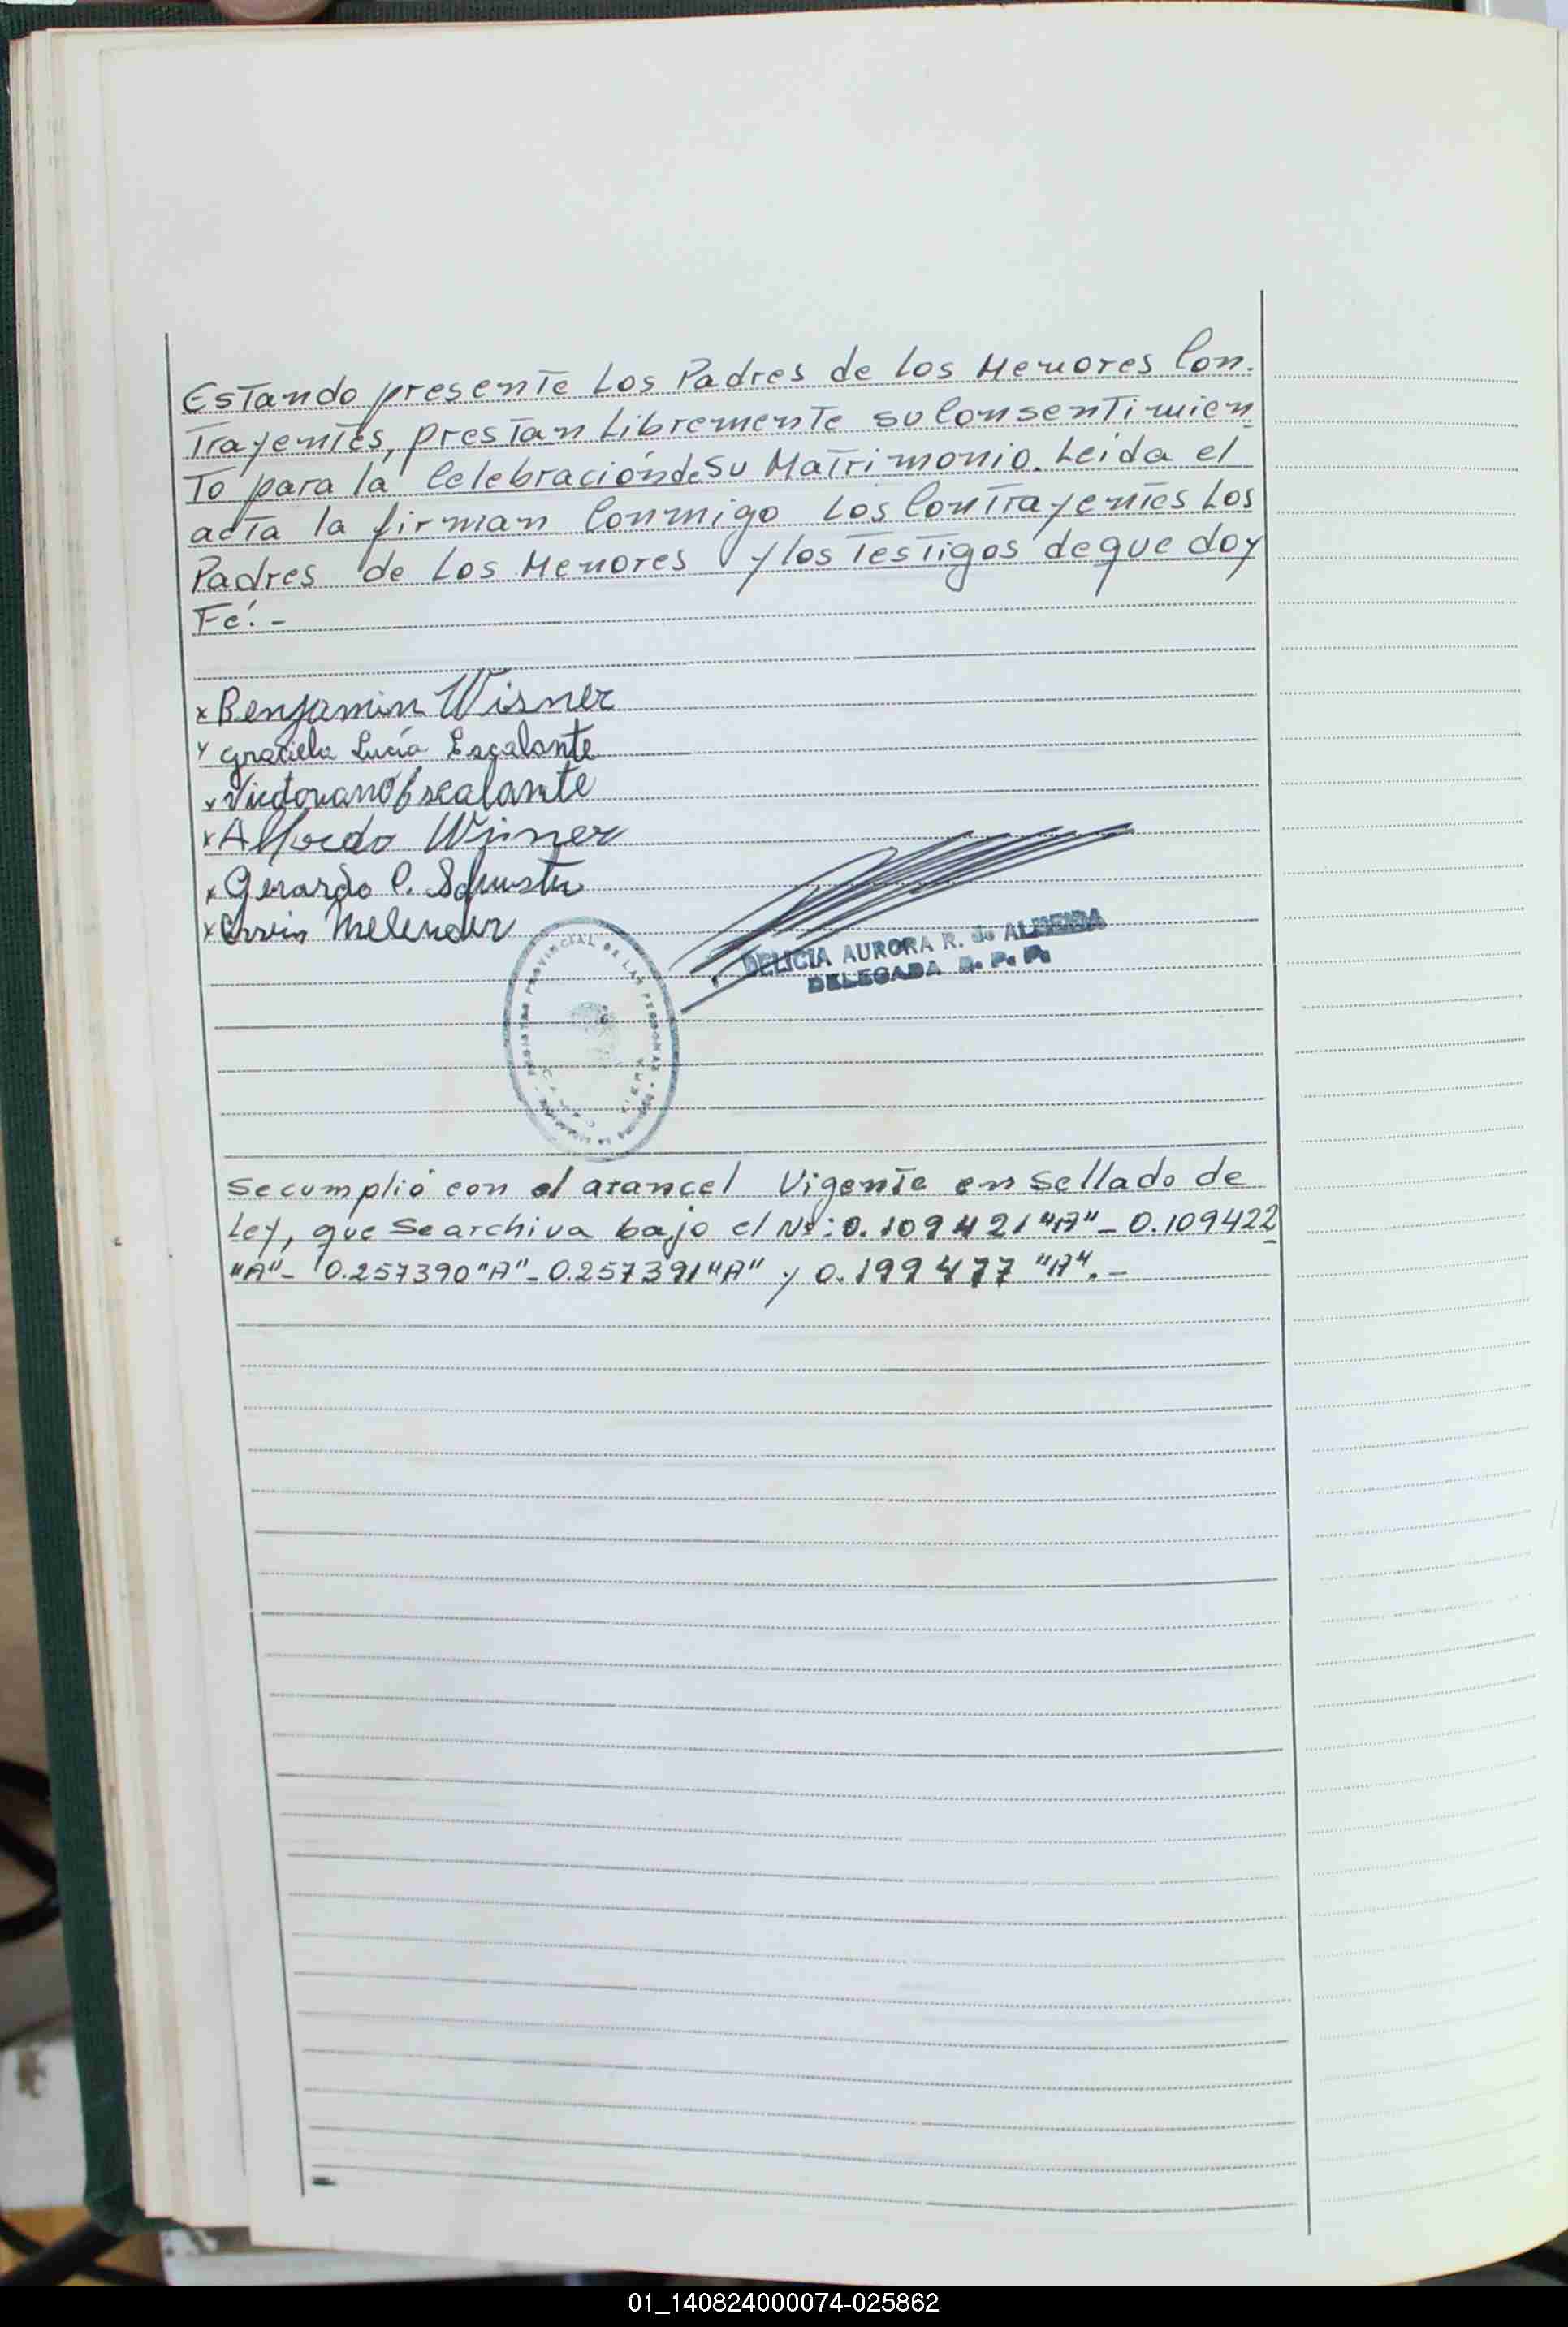 Estando presente Los Padres de los Menores Con-
trayentes, prestan Libremente su Consentimien
To para la Celebración de Su Matrimonio. Leida el
acta la firman Conmigo Los Contrayentes Los
Padres de Los Menores y los Testigos de que doy
Fé.-
x Benjamin Wisner
x Graciela Lucía Escalante
x Victoriano Escalante
x Alfredo Wisner
x Gerardo C. Schuster
x Melender
DELICIA AURORA R. de ALMEIDA
DELEGADA R. P. P.
PROVINCIAL DE LAS PERSONAS
Se cumplió con el arancel Vigente en Sellado de
Ley, que Se archiva bajo el Nº: 0.109421 "A" - 0.109422
"A" - 0.257390 "A" - 0.257391 "A" y 0.199477 "A".-
01_140824000074-025862